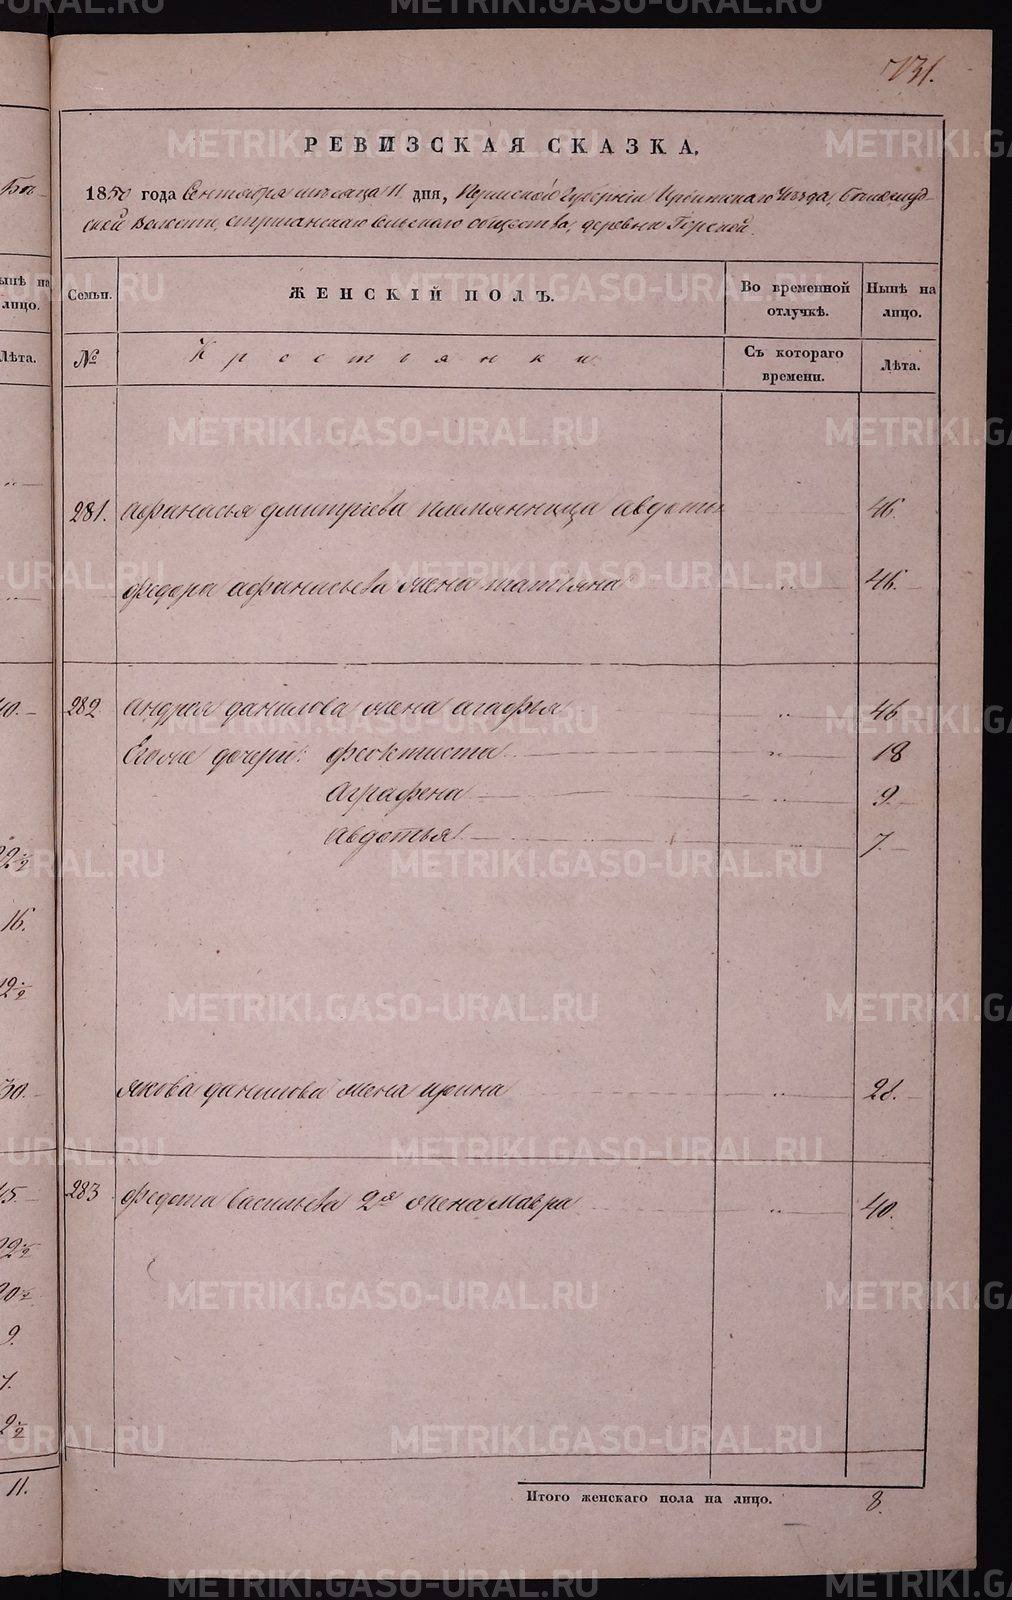 731.
РЕВИЗСКАЯ СКАЗКА.
1850 года Сентября мѣсяца 11 дня, Пермской Губерніи Ирбитскаго Уѣзда,
ской волости, сельскаго общества, деревни Горской.
Семьи. ЖЕНСКІЙ ПОЛЪ. Во временной отлучкѣ. Нынѣ на лицо.
№ Крестьянки Съ котораго времени. Лѣта.
281. Афанасья Дмитріева племянница Авдотья 46.
Федора Афанасьева жена Татьяна „ 46.
282 Андрея Данилова жена Агафья „ 46
Егоже дочери: Феоктиста „ 18
Аграфена „ 9.
Авдотья „ 7.
Якова Данилова жена Ирина „ 28.
283 Федота Васильева 2я жена Мавра „ 40.
Итого женскаго пола на лицо. 8.
ынѣ на
лицо.
Лѣта.
40.
22½
16.
12½
30.
45.
22½
20½
9.
7.
2½
11.
METRIKI.GASO-URAL.RU